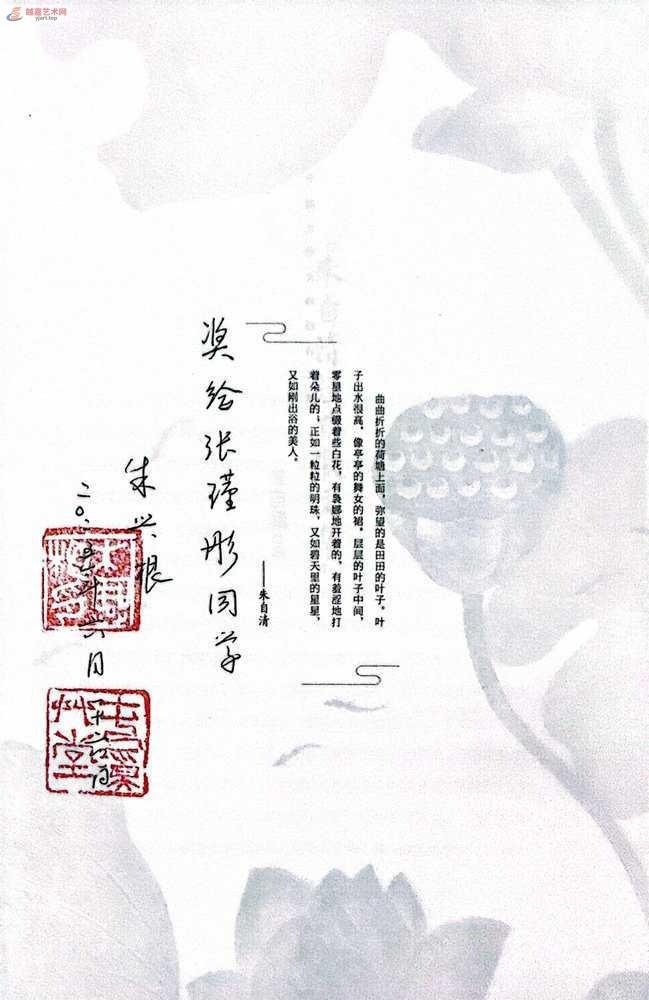 越嘉艺术网
yjart.top
曲曲折折的荷塘上面，弥望的是田田的叶子。叶
子出水很高，像亭亭的舞女的裙。层层的叶子中间，
零星地点缀着些白花，有袅娜地开着的，有羞涩地打
着朵儿的；正如一粒粒的明珠，又如碧天里的星星，
又如刚出浴的美人。
——朱自清
奖给张瑾彤同学
朱兴根